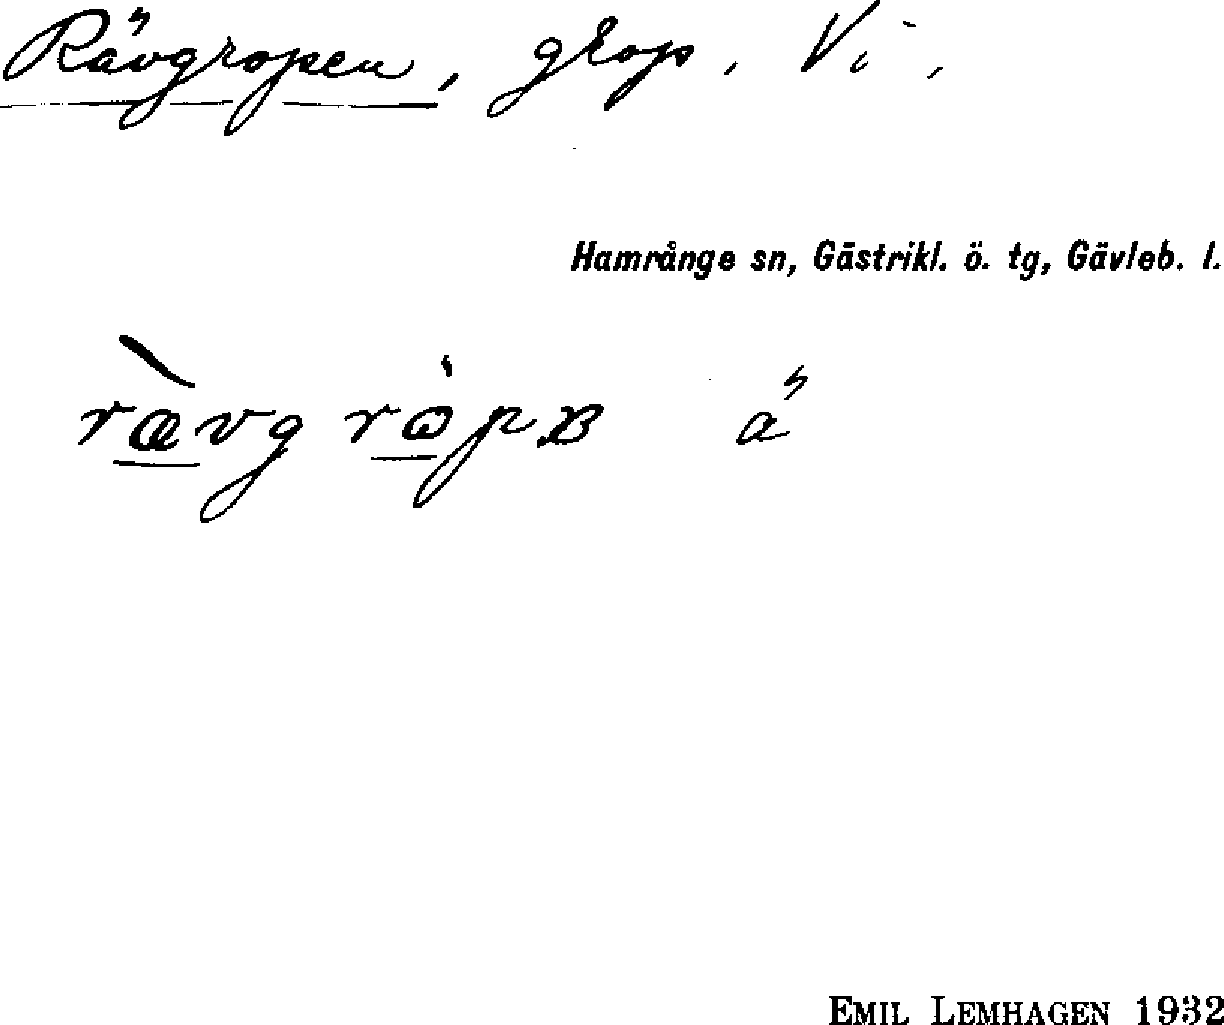 Rävgropen, grop. Vi,
Hamrånge sn, Gästrikl. ö. tg, Gävleb. l.
EMIL LEMHAGEN 1932